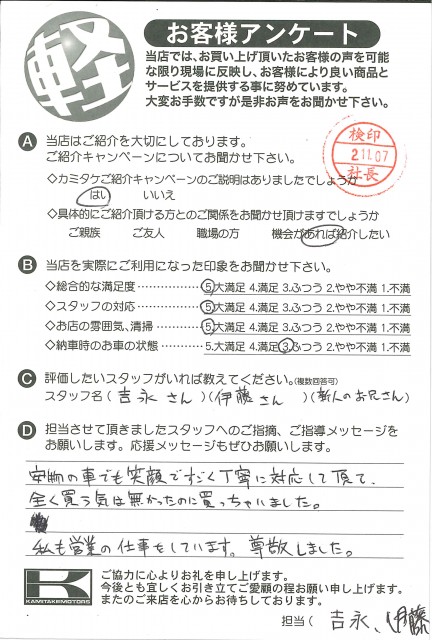 軽
お客様アンケート
当店では、お買い上げ頂いたお客様の声を可能
な限り現場に反映し、お客様により良い商品と
サービスを提供する事に努めています。
大変お手数ですが是非お声をお聞かせ下さい。
A 当店はご紹介を大切にしております。
ご紹介キャンペーンについてお聞かせ下さい。
検印
211.07
社長
◇カミタケご紹介キャンペーンのご説明はありましたでしょうか
はい いいえ
◇具体的にご紹介頂ける方とのご関係をお聞かせ頂けますでしょうか
ご親族 ご友人 職場の方 機会があれば紹介したい
B 当店を実際にご利用になった印象をお聞かせ下さい。
◇総合的な満足度 5.大満足 4.満足 3.ふつう 2.やや不満 1.不満
◇スタッフの対応 5.大満足 4.満足 3.ふつう 2.やや不満 1.不満
◇お店の雰囲気、清掃 5.大満足 4.満足 3.ふつう 2.やや不満 1.不満
◇納車時のお車の状態 5.大満足 4.満足 3.ふつう 2.やや不満 1.不満
C 評価したいスタッフがいれば教えてください。(複数回答可)
スタッフ名(吉永さん)(伊藤さん)(新人のお兄さん)
D 担当させて頂きましたスタッフへのご指摘、ご指導メッセージを
お願いします。応援メッセージもぜひお願いします。
安物の車でも笑顔ですごく丁寧に対応して頂て、
全く買う気は無かったのに買っちゃいました。
私も営業の仕事をしています。尊敬しました。
KAMITAKEMOTORS
ご協力に心よりお礼を申し上げます。
今後とも宜しくお引き立てご愛顧の程お願い申し上げます。
またのご来店を心からお待ちしております。
担当( 吉永、伊藤